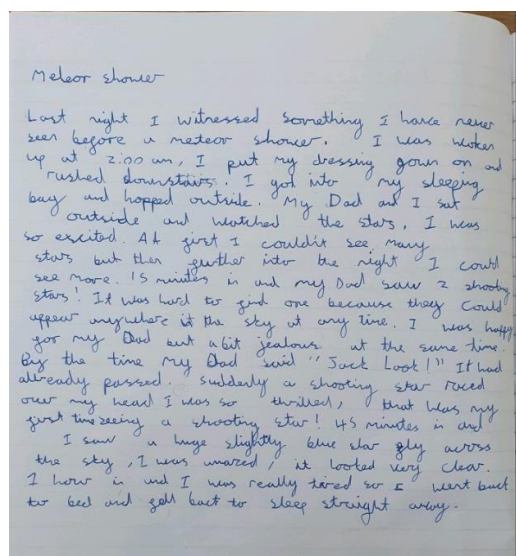 Meteor shower
Last night I witnessed something I have never
seen before a meteor shower. I was woken
up at 2:00 am, I put my dressing gown on and
rushed downstairs. I got into my sleeping
bag and hopped outside. My Dad and I sat
outside and watched the stars, I was
so excited. At first I couldn't see many
stars but then further into the night I could
see more. 15 minutes in and my Dad saw 2 shooting
stars! It was hard to find one because they could
appear anywhere it the sky at any time. I was happy
for my Dad but abit jealous at the same time.
By the time my Dad said "Jack Look!" It had
already passed. Suddenly a shooting star raced
over my head I was so thrilled, that was my
first time seeing a shooting star! 45 minutes in and
I saw a huge slightly blue star fly across
the sky, I was amazed, it looked very clear.
1 hour in and I was really tired so I went back
to bed and fell back to sleep straight away.